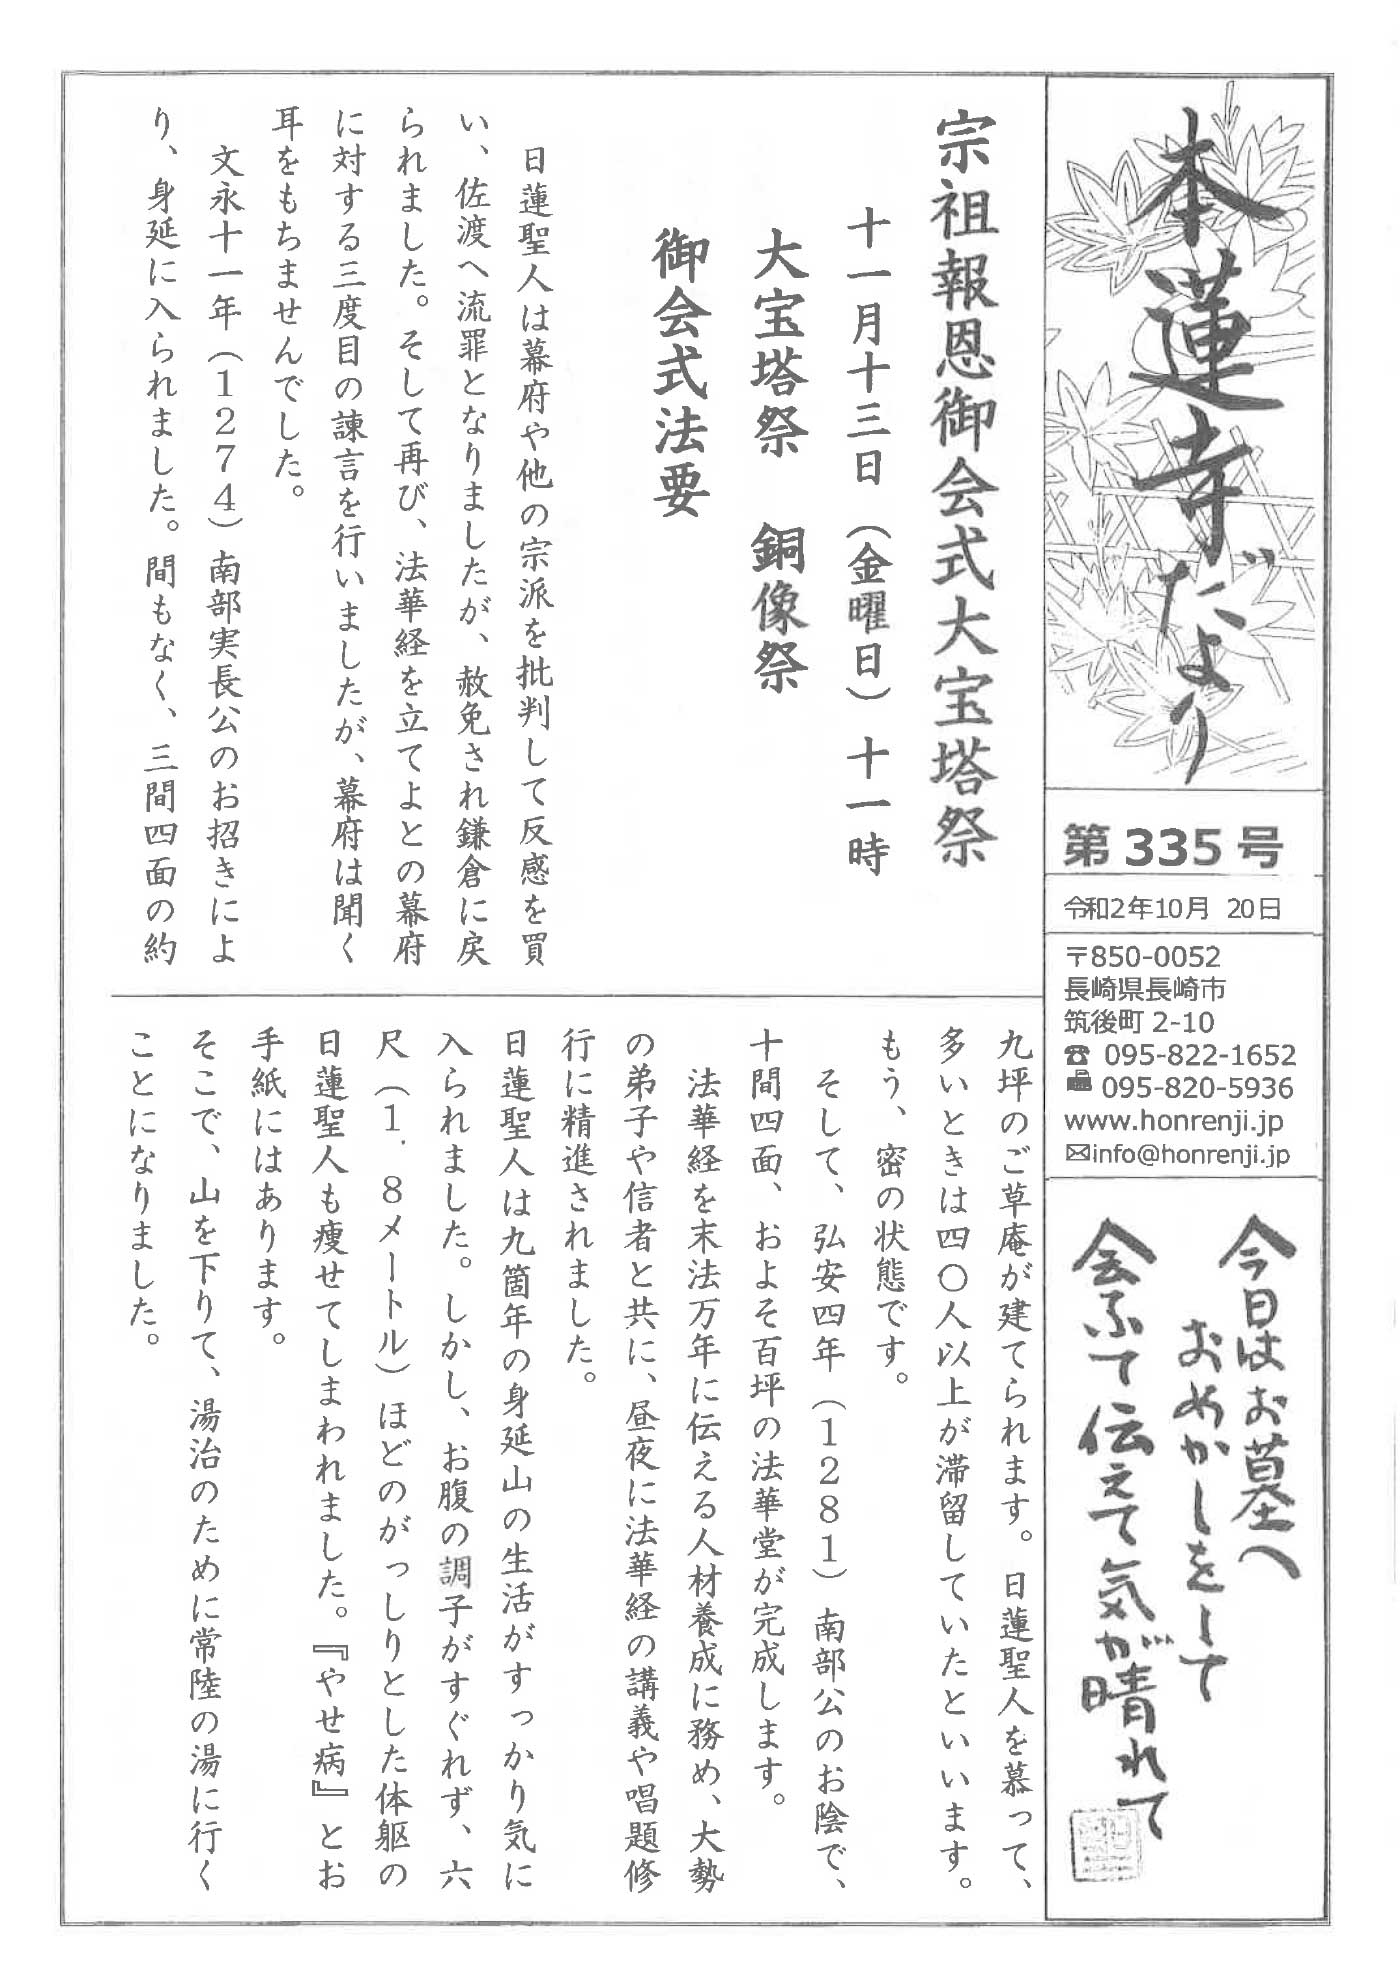 本蓮寺だより
第335号
令和2年10月 20日
〒850-0052
長崎県長崎市
筑後町 2-10
☎ 095-822-1652
📠 095-820-5936
www.honrenji.jp
✉info@honrenji.jp
今日はお墓へ
おめかしをして
会ふて伝えて気が晴れて
宗祖報恩御会式大宝塔祭
十一月十三日（金曜日）十一時
大宝塔祭　銅像祭
御会式法要
日蓮聖人は幕府や他の宗派を批判して反感を買
い、佐渡へ流罪となりましたが、赦免され鎌倉に戻
られました。そして再び、法華経を立てよとの幕府
に対する三度目の諫言を行いましたが、幕府は聞く
耳をもちませんでした。
文永十一年（1274）南部実長公のお招きによ
り、身延に入られました。間もなく、三間四面の約
九坪のご草庵が建てられます。日蓮聖人を慕って、
多いときは四〇人以上が滞留していたといいます。
もう、密の状態です。
そして、弘安四年（1281）南部公のお陰で、
十間四面、およそ百坪の法華堂が完成します。
法華経を末法万年に伝える人材養成に務め、大勢
の弟子や信者と共に、昼夜に法華経の講義や唱題修
行に精進されました。
日蓮聖人は九箇年の身延山の生活がすっかり気に
入られました。しかし、お腹の調子がすぐれず、六
尺（1．8メートル）ほどのがっしりとした体躯の
日蓮聖人も痩せてしまわれました。『やせ病』とお
手紙にはあります。
そこで、山を下りて、湯治のために常陸の湯に行く
ことになりました。